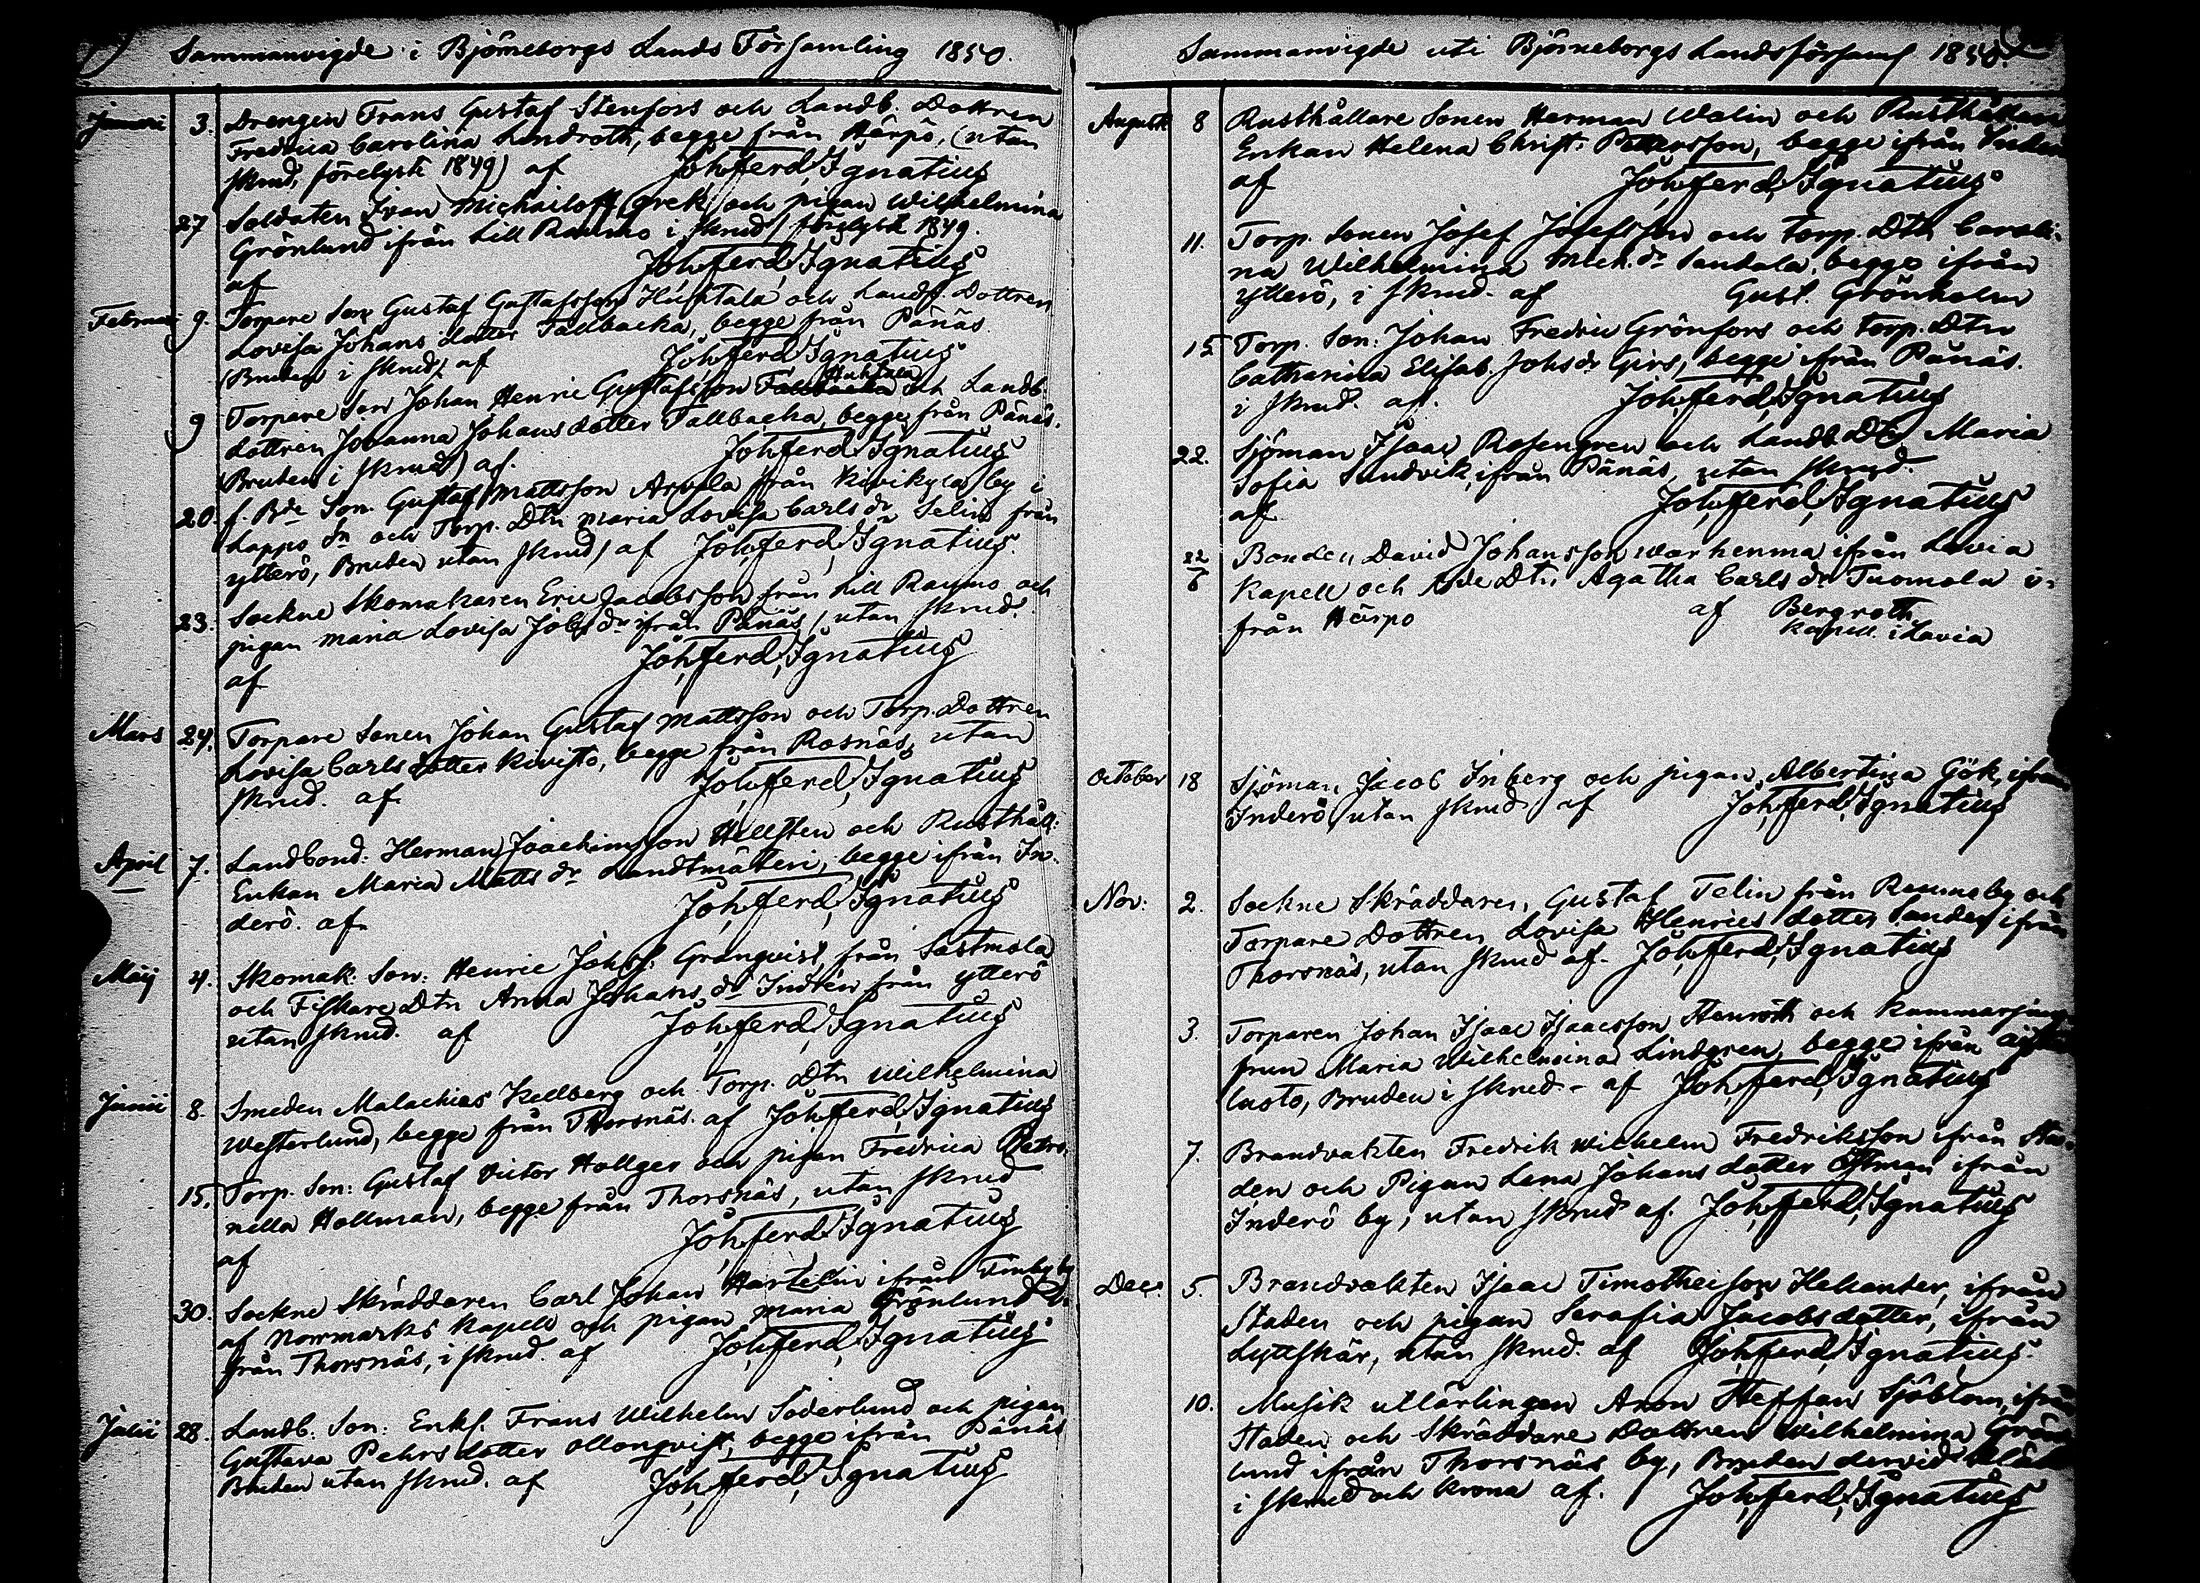 Sammanvigde i Björneborgs Lands Församling 1850.
Januari 3. Drengen Frans Gustaf Stenfors och Landb. Dottren
Fredrica Carolina Lindroth, begge från Härpö, (utan
skrud, förelyst 1849) af Joh. Ferd. Ignatius
27 Soldaten Ivan Michailoff, grek och pigan Wilhelmina
Grönlund ifrån Lill Raumo i skrud / förelyst 1849.
af Joh. Ferd. Ignatius
Februari 9. Torpare Son Gustaf Gustafsson Huhtala och Landb. Dottren
Lovisa Johans dotter Tallbacka, begge från Pänäs
(Bruden i skrud) af Joh. Ferd. Ignatius
9 Torpare Son Johan Henric Gustafsson Huhtala och Landb.
dottren Johanna Johans dotter Tallbacka, begge från Pänäs.
(Bruden i skrud) af. Joh. Ferd. Ignatius
20 f. Bde Son. Gustaf Mattsson Arvela från Kivikylä by i
Lappo Sn och Torp. Dtn Maria Lovisa Carls dr Selin från
ytterö, Bruden utan skrud / af Joh. Ferd. Ignatius.
23. Sockne Skomakaren Eric Jacobsson från Lill Raumo och
pigan Maria Lovisa Jobs dr ifrån Pänäs / utan skrud.
af Joh. Ferd. Ignatius
Mars 24. Torpare Sonen Johan Gustaf Mattsson och Torp. Dottren
Lovisa Carls dotter Kivistö, begge från Rosnäs, utan
skrud. af Joh. Ferd. Ignatius
April 7. Landbond: Herman Joachimsson Hellsten och Rusthåll:
Enkan Maria Matts dr Landtmäteri, begge ifrån In-
derö. af Joh. Ferd. Ignatius
Maij 4. Skomak. Son: Henric Johss: Granqvist, från Sastmola
och Fiskare Dtn Anna Johans dr Indtén från ytterö
utan skrud. af Joh. Ferd. Ignatius
Junii 8. Smeden Malachias Kellberg och Torp. Dtn Wilhelmina
Westerlund, begge från Thorsnäs. af Joh. Ferd. Ignatius
15. Torp. Son: Gustaf Victor Hollger och pigan Fredrica Petro-
nella Hollman, begge från Thorsnäs, utan skrud
af Joh. Ferd. Ignatius
30. Sockne Skräddaren Carl Johan Hartelin ifrån Finby by
af Norrmarks Kapell och pigan Maria Grönlund
från Thorsnäs, i skrud. af Joh. Ferd. Ignatius
Julii 28. Landb. Son: Enkl. Frans Wilhelm Söderlund och pigan
Gustava Pehrs dotter Ollonqvist, begge ifrån Pänäs
Bruden utan skrud. af Joh. Ferd. Ignatius
Sammanvigde uti Björneborgs Landsförsaml 1850.
Augusti 8 Rusthållare Sonen Herman Walin och Rusthållare
Enkan Helena Christ. Pettersson, begge ifrån
af Joh. Ferd. Ignatius
11. Torp. Sonen Josef Josefsson och Torp. Dtn Caroli-
na Wilhelmina Mich. dr Sandala, begge ifrån
ytterö, i skrud. af Gust. Grönholm
15 Torp. Son: Johan Fredric Grönfors och Torp. Dtn
Catharina Elisab. Johs dr Girs, begge ifrån Pänäs.
i skrud. af. Joh. Ferd. Ignatius
22. Sjöman Isaac Rosengren och Landb. Dtr Maria
Sofia Sundvik, ifrån Pänäs, utan skrud.
af Joh. Ferd. Ignatius
22/8 Bonden David Johansson Warhenma ifrån Lavia
Kapell och Bde Dtn Agatha Carls dr Tuomola i-
från Härpo af Bergroth
Kapell. i Lavia
October 18 Sjöman Jacob Inberg och pigan Albertina Gök, ifrån
Inderö, utan skrud af Joh. Ferd. Ignatius
Nov: 2. Sockne Skräddaren, Gustaf Telin från Raumo by och
Torpare Dottren Lovisa Henrics dotter Sander ifrån
Thorsnäs, utan skrud af. Joh. Ferd. Ignatius
3. Torparen Johan Isaac Isaacsson Henroth och Kammarjung-
frun Maria Wilhelmina Lindgren, begge ifrån
luoto, Bruden i skrud - af Joh. Ferd. Ignatius
7. Brandvakten Fredrik Wilhelm Fredriksson ifrån Sta-
den och Pigan Lena Johans dotter Östman ifrån
Inderö by, utan skrud af. Joh. Ferd. Ignatius
Dec. 5. Brandvakten Isaac Timotheison Helander, ifrån
Staden och pigan Serafia Jacobs dotter, ifrån
Lyttskär, utan skrud. af Joh. Ferd. Ignatius.
10. Musik utlärlingen Aron Steffan Sjöblom, ifrån
Staden och Skräddare Dottren Wilhelmina Grön-
lund ifrån Thorsnäs by, Bruden dervid klädd
i skrud och krona af. Joh. Ferd. Ignatius